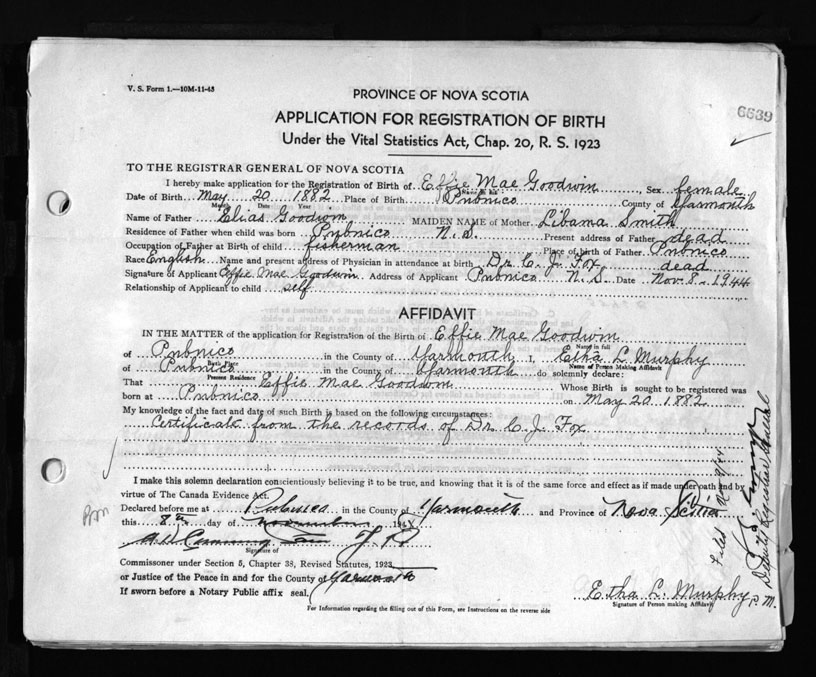 V. S. Form 1.—10M-11-43
PROVINCE OF NOVA SCOTIA
6639
APPLICATION FOR REGISTRATION OF BIRTH
Under the Vital Statistics Act, Chap. 20, R. S. 1923
TO THE REGISTRAR GENERAL OF NOVA SCOTIA
I hereby make application for the Registration of Birth of Effie Mae Goodwin, Sex female
Date of Birth May 20 1882 Place of Birth Pubnico County of Yarmouth
Month Date Year
Name of Father Elias Goodwin MAIDEN NAME of Mother Libama Smith
Residence of Father when child was born Pubnico N.S. Present address of Father dead
Occupation of Father at Birth of child fisherman Place of birth of Father Pubnico
Race English Name and present address of Physician in attendance at birth Dr C. J. Fox dead
Signature of Applicant Effie Mae Goodwin Address of Applicant Pubnico N.S. Date Nov. 8. 1944
Relationship of Applicant to child self
AFFIDAVIT
IN THE MATTER of the application for Registration of the Birth of Effie Mae Goodwin
Name in full
of Pubnico in the County of Yarmouth I, Etha L Murphy
Birth Place Name of Person Making Affidavit
of Pubnico in the County of Yarmouth do solemnly declare:
Present Residence
That Effie Mae Goodwin Whose Birth is sought to be registered was
born at Pubnico on May 20 1882
My knowledge of the fact and date of such Birth is based on the following circumstances:
Certificate from the records of Dr C. J. Fox
I make this solemn declaration conscientiously believing it to be true, and knowing that it is of the same force and effect as if made under oath and by
virtue of The Canada Evidence Act.
Declared before me at Pubnico in the County of Yarmouth and Province of Nova Scotia
this 8th day of November 194
J.P.
Signature of
Commissioner under Section 5, Chapter 38, Revised Statutes, 1923
or Justice of the Peace in and for the County of Yarmouth
If sworn before a Notary Public affix seal.
Etha L. Murphy
Signature of Person making Affidavit
For Information regarding the filling out of this Form, see Instructions on the reverse side
Filed Nov 9/44
Deputy Registrar General